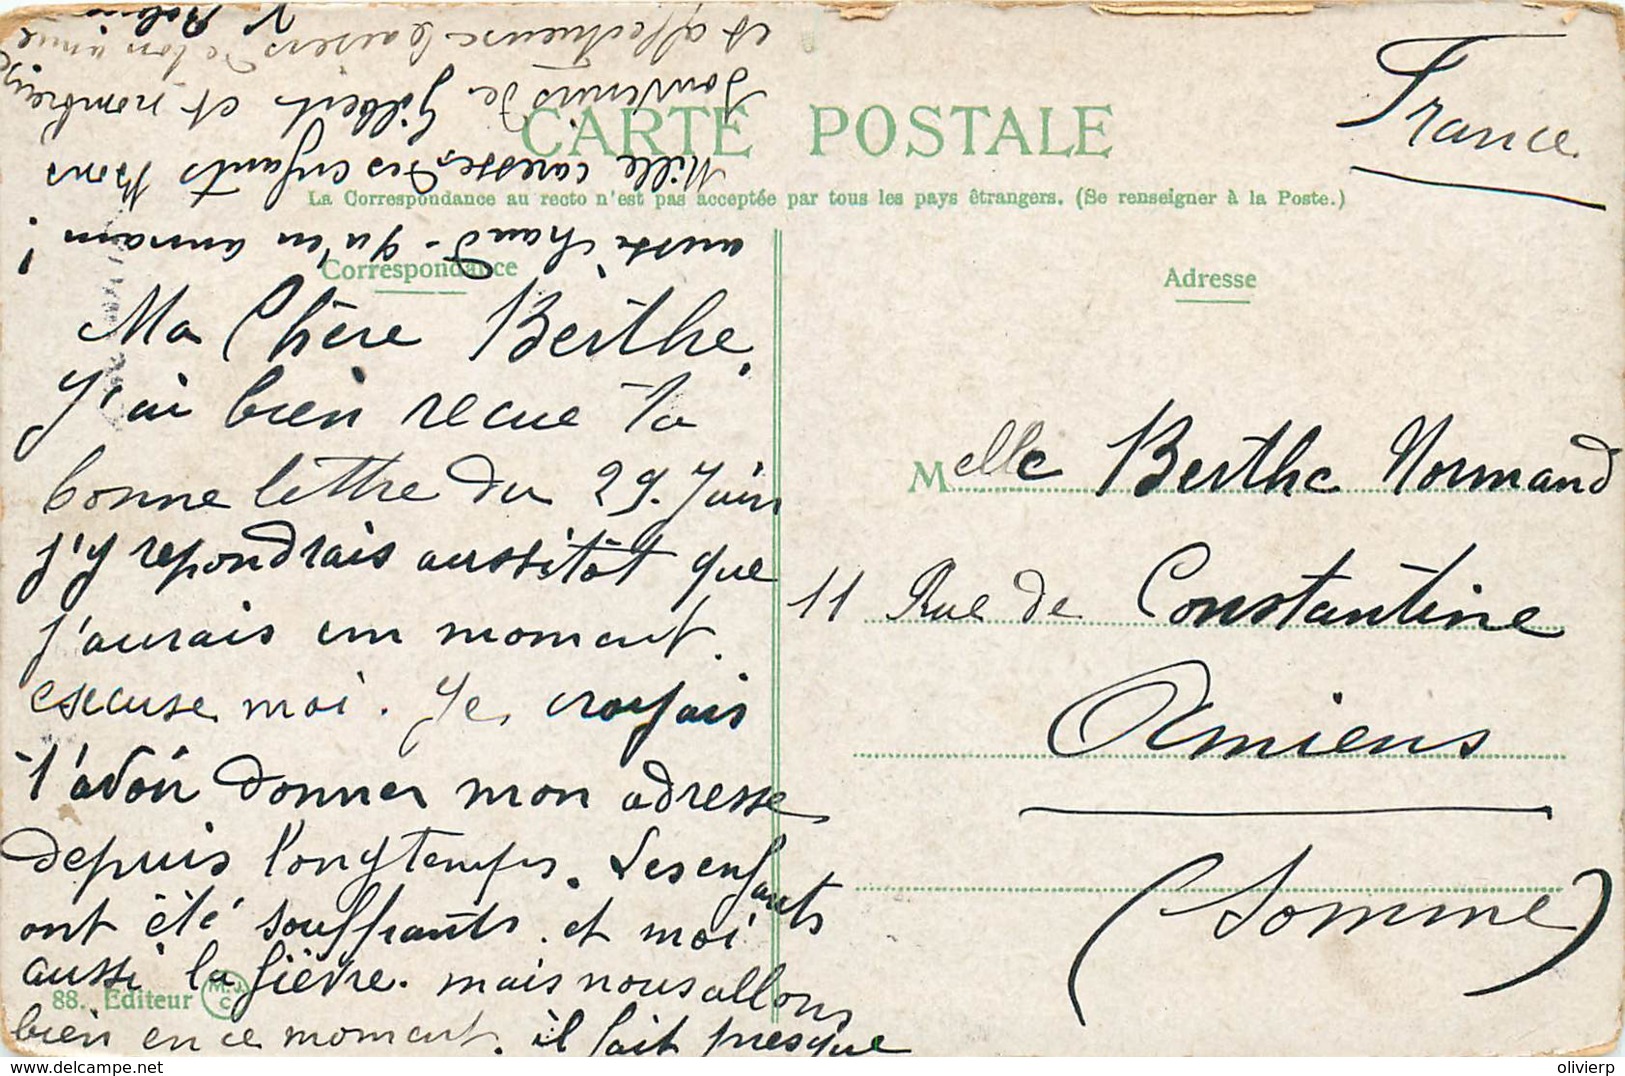 CARTE POSTALE
France
La Correspondance au recto n'est pas acceptée par tous les pays étrangers. (Se renseigner à la Poste.)
Correspondance
Adresse
Ma Chère Berthe,
J'ai bien recue ta
bonne lettre du 29. Juin
j'y repondrais aussitôt que
j'aurais un moment.
escuse moi. Je croyais
t'avoir donner mon adresse
depuis longtemps. Les enfants
ont été souffrants. et moi
aussi la fièvre. mais nous allons
bien en ce moment. il fait presque
aussi chaud qu'en annam!
Mille caresses des enfants Bons
Souvenirs de Gilbert et nombreuse
et affectueuse baisers de ton amie
Melle Berthe Normand
11 Rue de Constantine
Amiens
(Somme)
88. Editeur M.J.C
olivierp